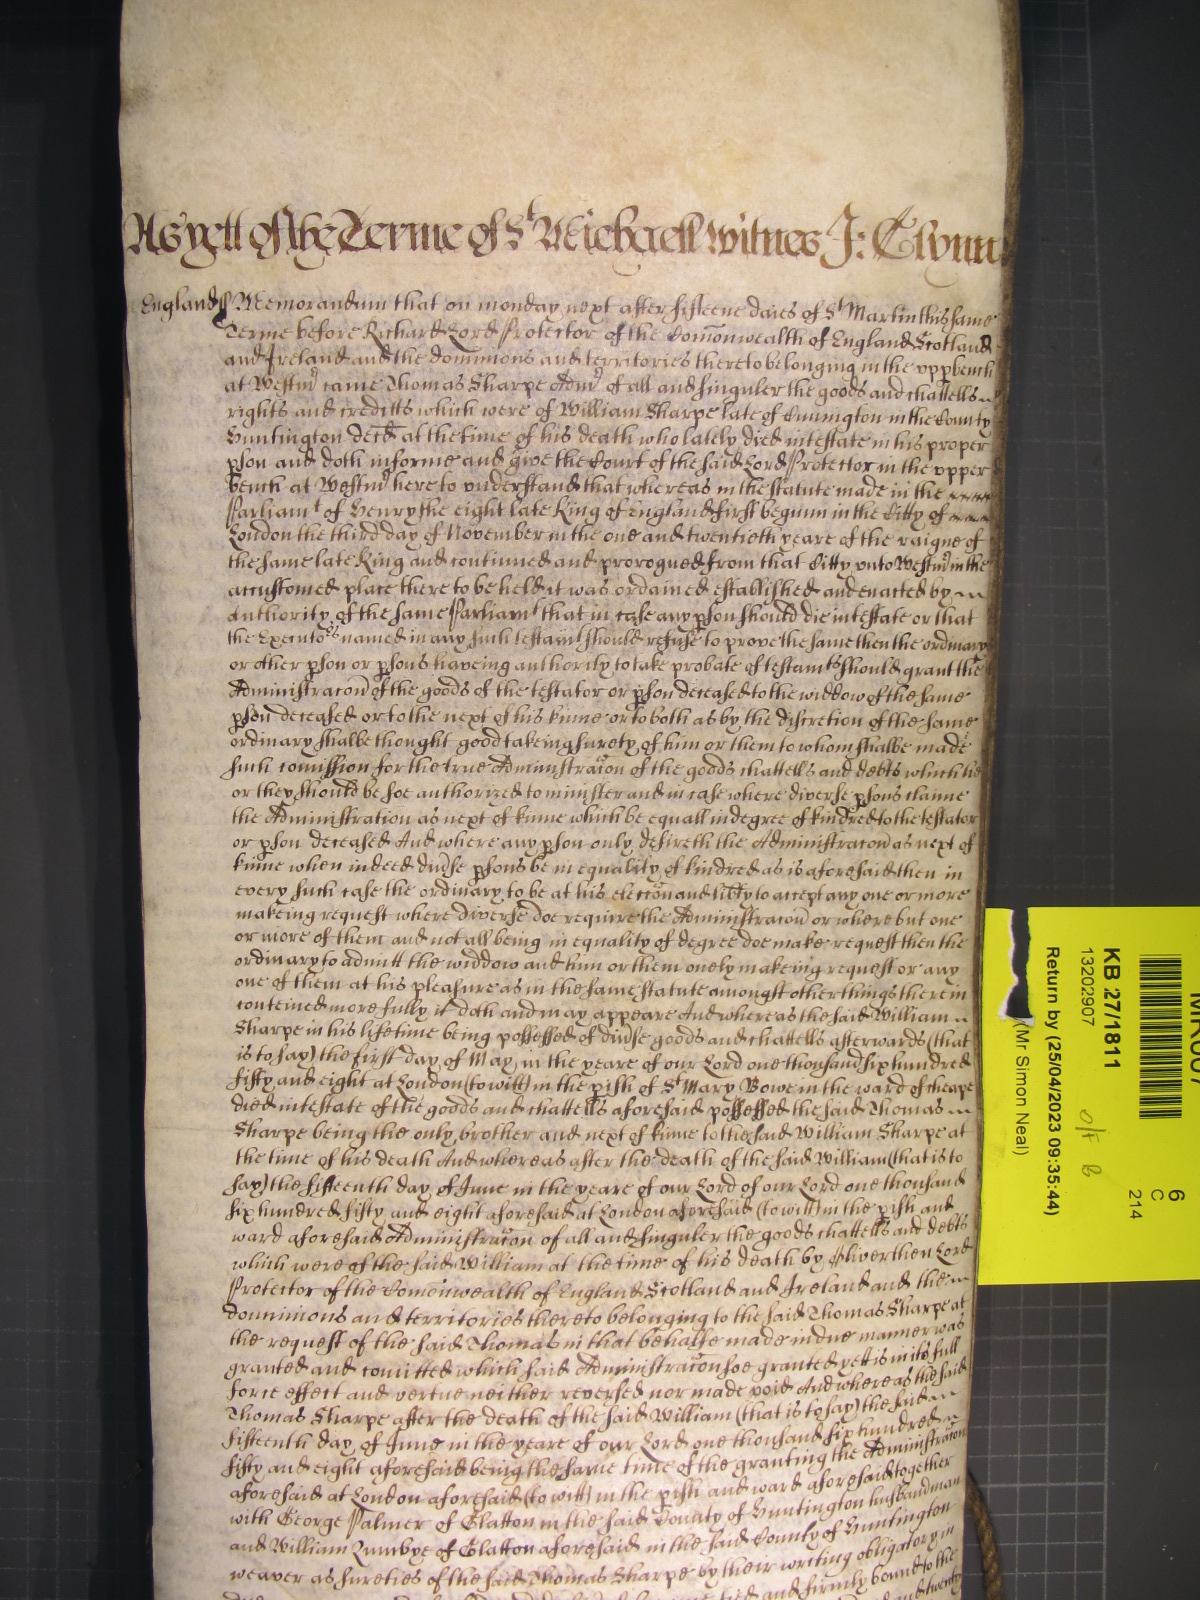 As yett of the Terme of St Michaell Witnes J: Glynn
England ss Memorandum that on monday next after fifteene daies of St Martin this same
Terme before Richard Lord Protector of the Com̄onwealth of England Scotland
and Ireland and the dominions and territories thereto belonging in the vpp bench
at Westmr came Thomas Sharpe Admr of all and singuler the goods and chattells
rights and creditts which were of William Sharpe late of Conington in the County
Huntington decd at the time of his death who lately died intestate in his proper
pson and doth informe and give the Court of the said Lord Protector in the vpper
bench at Westmr here to vnderstand that whereas in the statute made in the
Parliamt of Henry the eight late King of England first begunn in the Citty of
London the third day of November in the one and twentieth yeare of the raigne of
the same late King and continued and prorogued from that Citty vnto Westmr in the
accustomed place there to be held it was ordained established and enacted by
authority of the same Parliamt that in case any pson should die intestate or that
the Executors named in any such testamt should refuse to prove the same then the ordinary
or other pson or psons haveing authority to take probate of testamts should grant the
Administracon of the goods of the testator or pson deceased to the widdow of the same
pson deceased or to the next of his kinne or to both as by the discretion of the same
ordinary shalbe thought good takeing surety of him or them to whom shalbe made
such com̄ission for the true Administracon of the goods chattells and debts which he
or they should be soe authorized to minister and in case where diverse psons claime
the Administration as next of kinne which be equall in degree of kindred to the testator
or pson deceased And where any pson only desireth the Administracon as next of
kinne when indeed divse psons be in equality of kindred as is aforesaid then in
every such case the ordinary to be at his eleccon and libty to accept any one or more
makeing request where diverse doe require the Administracon or where but one
or more of them and not all being in equality of degree doe make request then the
ordinary to admitt the widdow and him or them onely makeing request or any
one of them at his pleasure as in the same statute amongst other things therein
conteined more fully it doth and may appeare And whereas the said William
Sharpe in his lifetime being possessed of divse goods and chattells afterwards (that
is to say) the first day of May in the yeare of our Lord one thousand six hundred
fifty and eight at London (to witt) in the pish of St Mary Bowe in the ward of cheape
died intestate of the goods and chattells aforesaid possessed the said Thomas
Sharpe being the only brother and next of kinne to the said William Sharpe at
the time of his death And whereas after the death of the said William (that is to
say) the fifteenth day of June in the yeare of our Lord of our Lord one thousand
six hundred fifty and eight aforesaid at London aforesaid (to witt) in the pish and
ward aforesaid Administracon of all and singuler the goods chattells and debts
which were of the said William at the time of his death by Oliver then Lord
Protector of the Com̄onwealth of England Scotland and Ireland and the
dominions and territories thereto belonging to the said Thomas Sharpe at
the request of the said Thomas in that behalfe made in due manner was
granted and com̄itted which said Administracon soe granted yett is in its full
force effect and vertue neither reversed nor made void And whereas the said
Thomas Sharpe after the death of the said William (that is to say) the said
fifteenth day of June in the yeare of our Lord one thousand six hundred
fifty and eight aforesaid being the same time of the granting the Administracon
aforesaid at London aforesaid (to witt) in the pish and ward aforesaid together
with George Palmer of Glatton in the said County of Huntington husbandman
and William of Glatton aforesaid in the said County of Huntington
weaver as sureties of the said Thomas Sharpe by their writing obligatory in
and firmly bound to the
and twenty
KB 27/1811
13202907
Return by (25/04/2023 09:35:44)
(Mr Simon Neal)
6
C
214